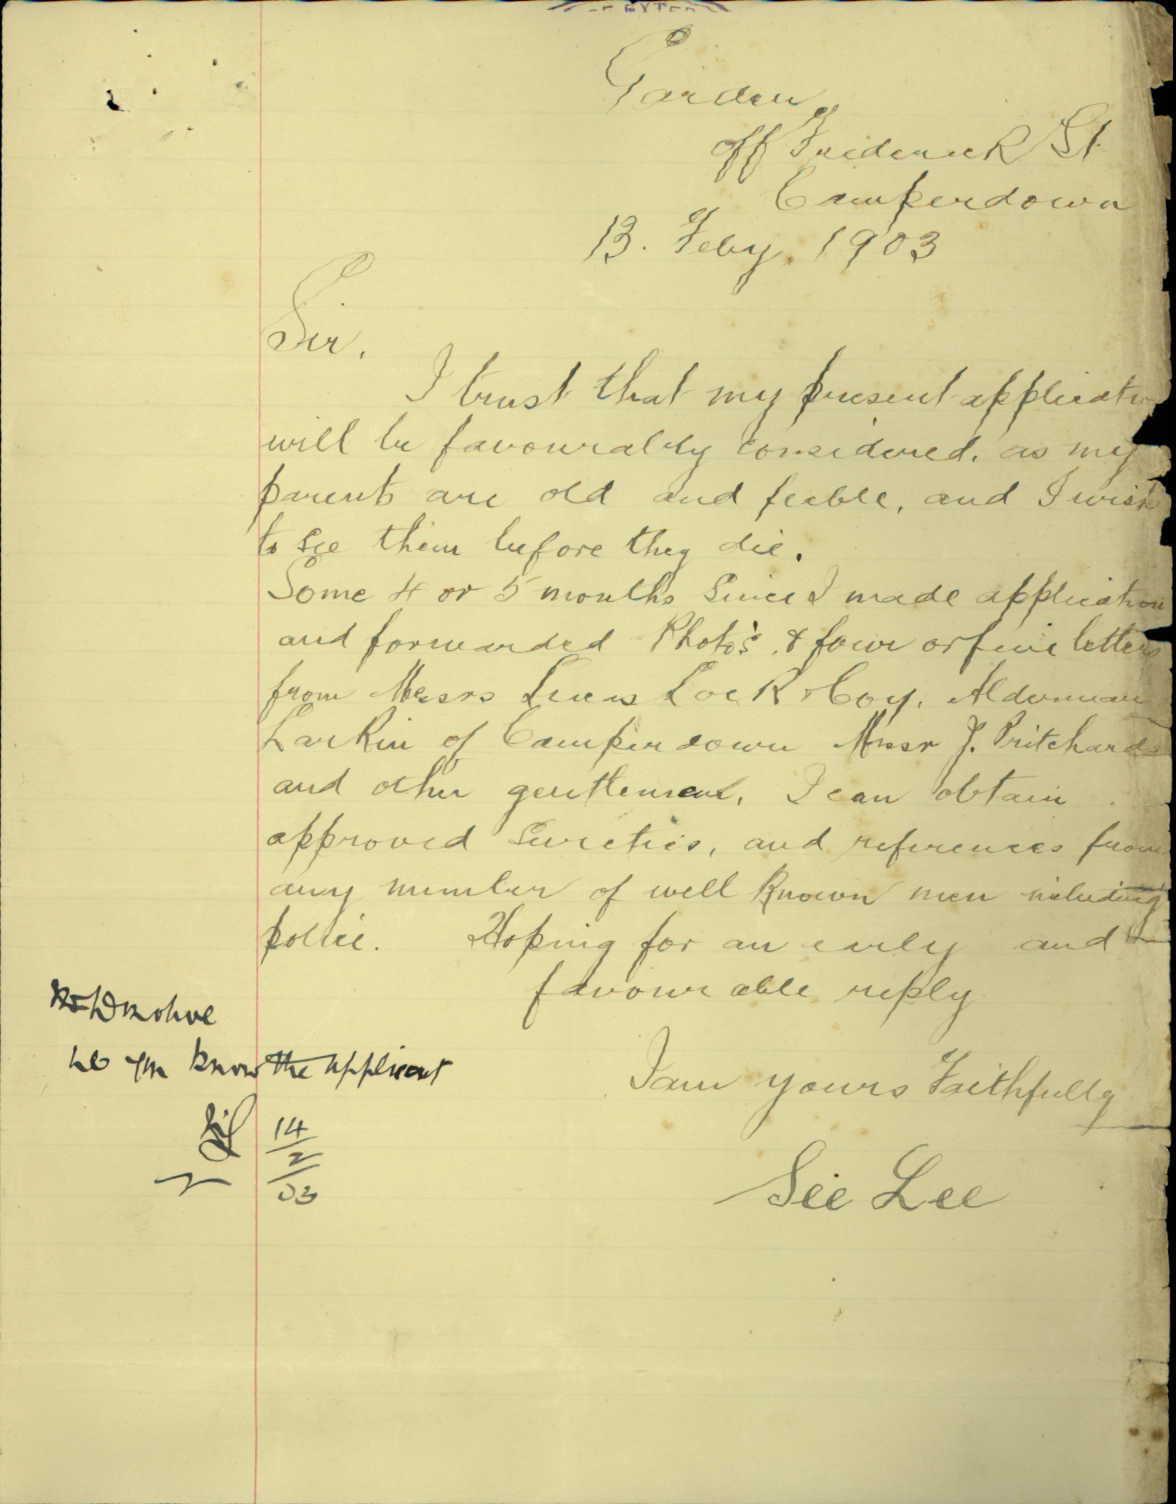 Garden
off Frederick St
Camperdown
13. Feby. 1903
Sir,
I trust that my present applicatn
will be favourably considered, as my
parents are old and feeble, and I wish
to see them before they die.
Some 4 or 5 months since I made application
and forwarded Photo's, & four or five letters
from Messrs Lock & Coy, Alderman
Larkin of Camperdown Messr J. Pritchard
and other gentlemen, I can obtain
approved Sureties, and references from
any number of well known men including
police. Hoping for an early and
favourable reply
I am yours Faithfully
See Lee
Mr Donohoe
Do you know the applicant
14/2/03